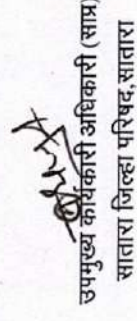 उपमुख्य कार्यकारी अधिकारी (साप्र)
सातारा जिल्हा परिषद,सातारा